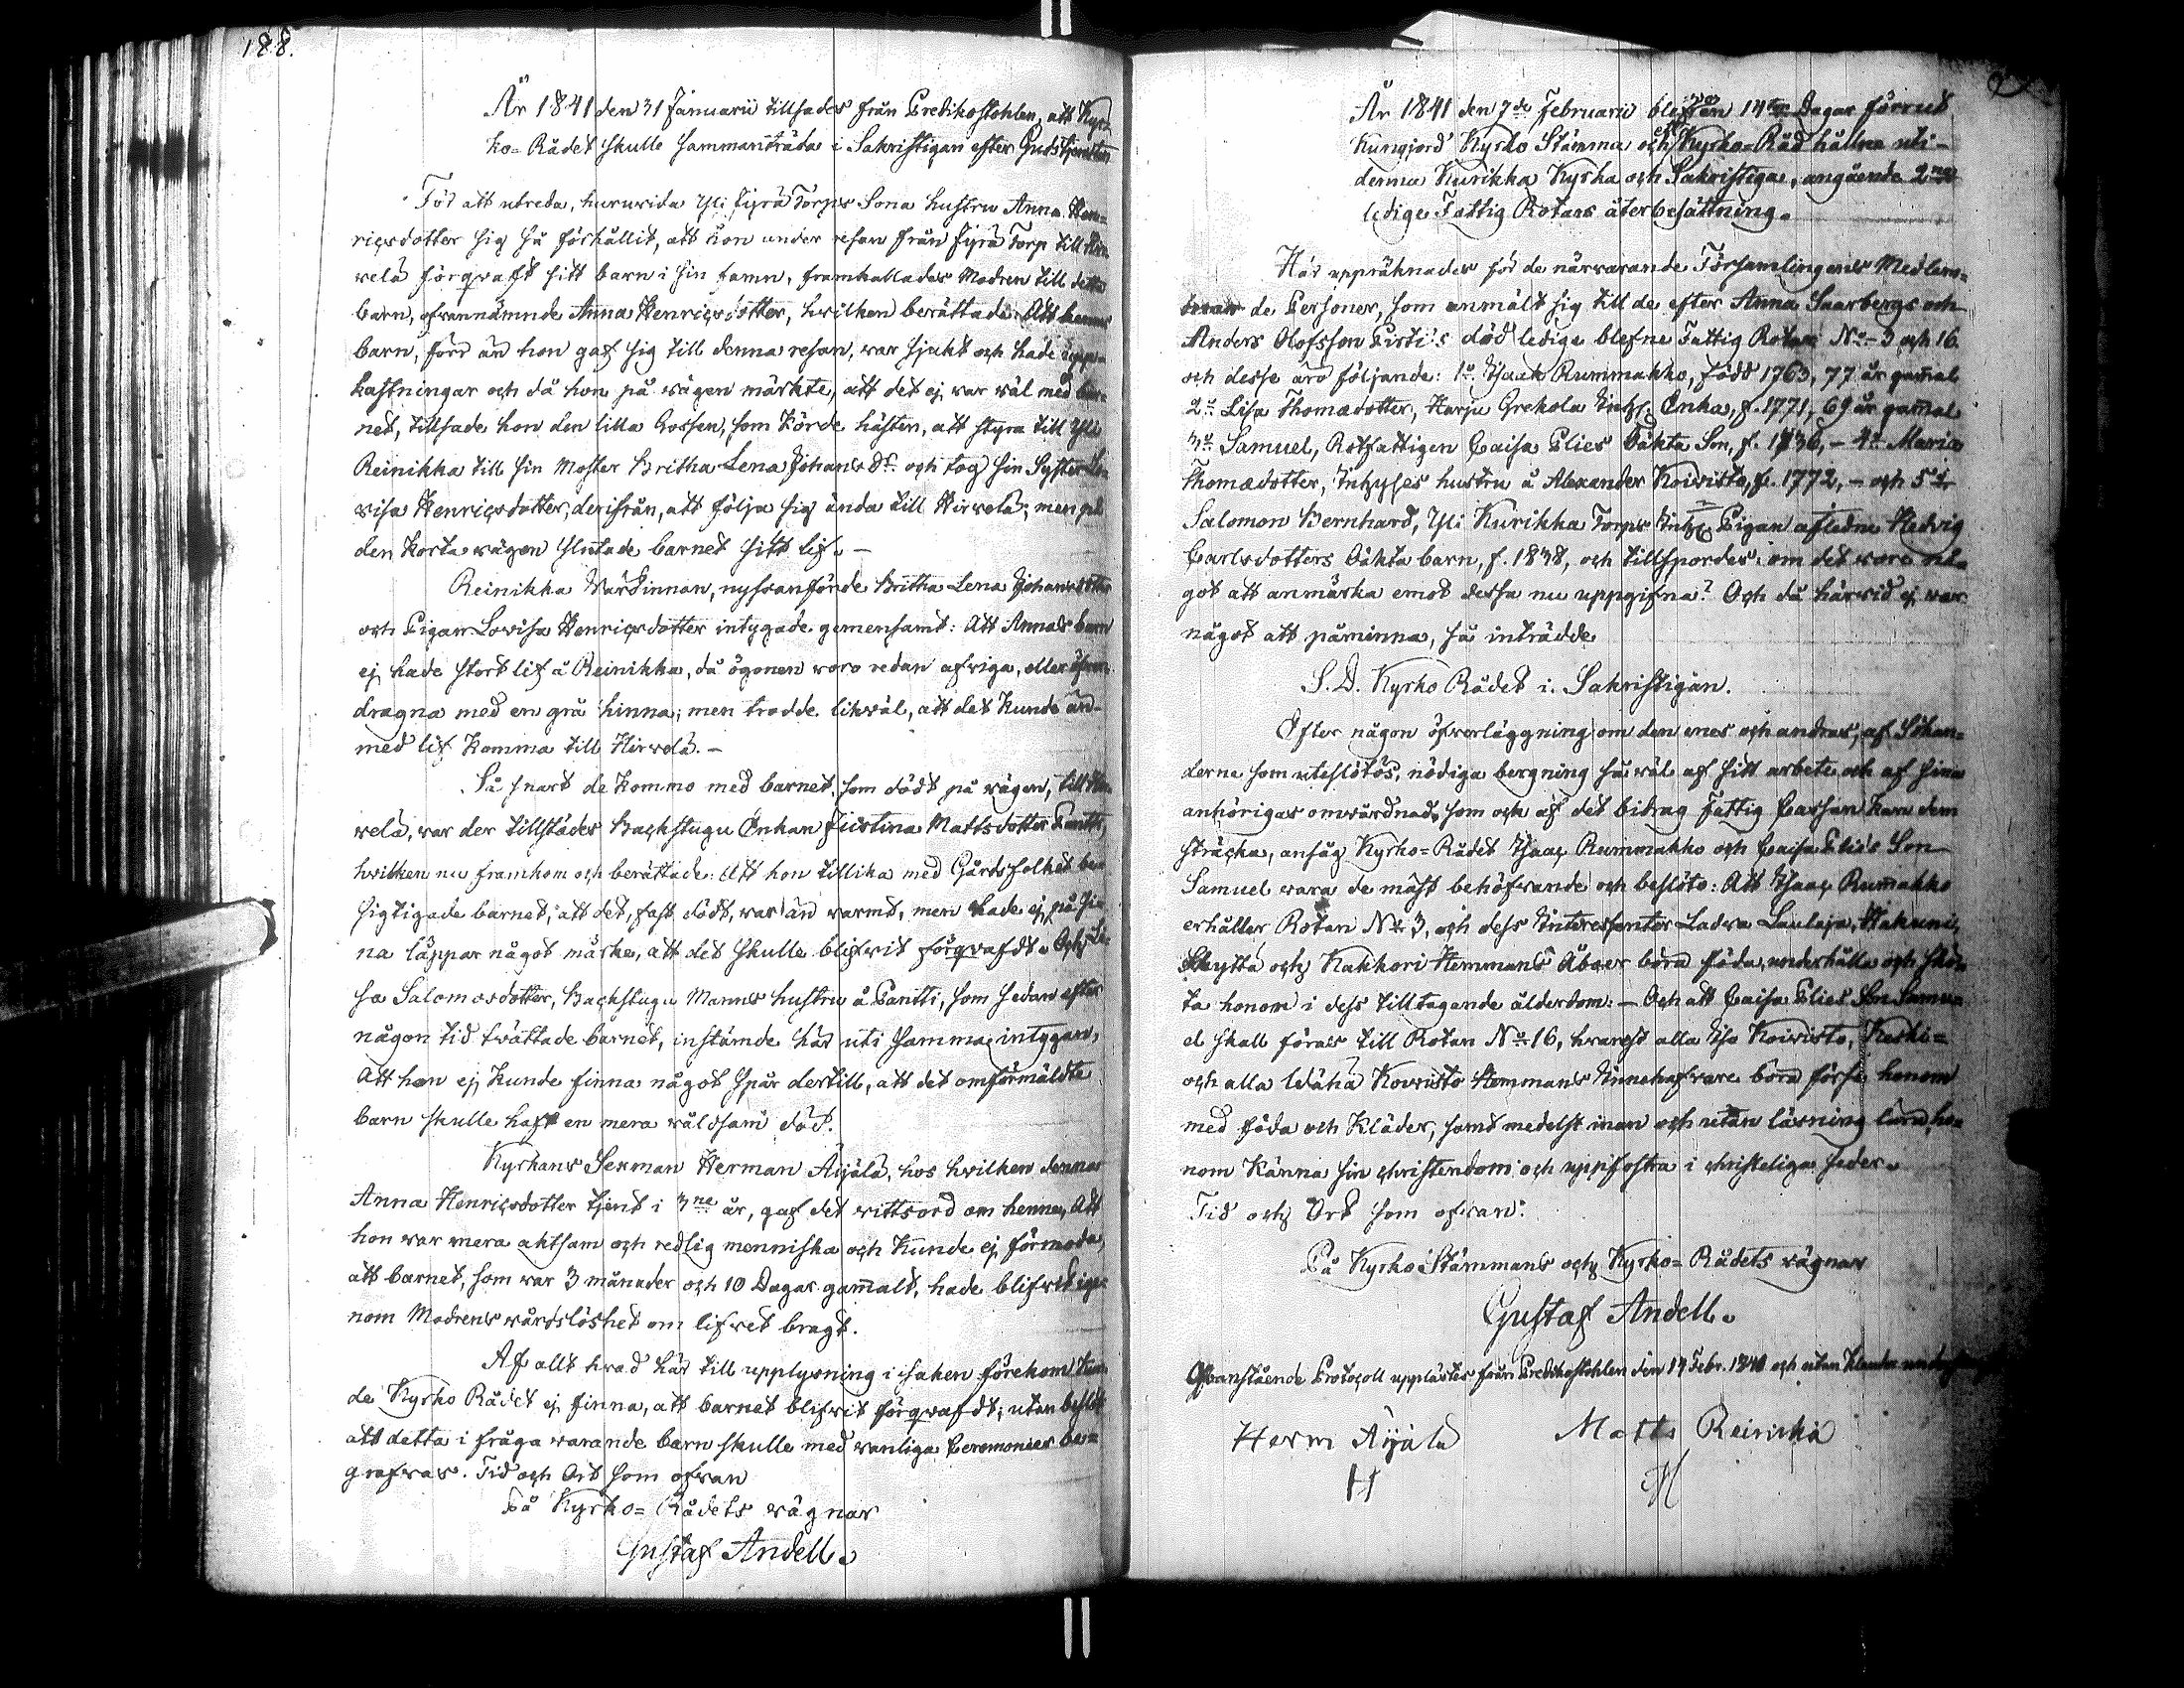 188.
År 1841 den 31 Januarii tillsades från Predikostohlen, att Kyr-
ko-Rådet skulle sammanträda i Sakristigan efter Gudstjensten
För att utreda, huruvida Yli Jyrä Torps Sona hustru Anna Hen-
ricsdotter sig så förhållit, att hon under resan från Jyrä Torp till Hir-
velä förqvafst sitt barn i sin famn, framkallades Modren till detta
barn, ofvannämnde Anna Henricsdotter, hvilken berättade: Att hennes
barn, förr än hon gaf sig till denna resan, war sjukt och hade upp-
kastningar och då hon på wägen märkte, att det ej war wäl med bar-
net, tillsade hon den lilla Gossen, som körde hästen, att styra till Yli
Reinikka till sin Moster Britha Lena Johans Dr. och tog sin Syster Lo-
visa Henricsdotter, derifrån, att följa sig ända till Hirvelä; men på
den korta wägen slutade barnet sitt lif. –
Reinikka Wärdinnan, nyssanförde Britha Lena Johansdotter
och Pigan Lovisa Henricsdotter intygade gemensamt: Att Annas barn
ej hade stort lif å Reinikka, då ögonen woro redan afviga, eller öfver-
dragna med en grå hinna; men trodde likwäl, att det kunde än-
med lif komma till Hirvelä. –
Så snart de kommo med barnet, som dödt på wägen, till Hir-
velä, war der tillstädes Backstugu Enkan Justina Mattsdotter Pantti,
hvilken nu framkom och berättade: Att hon tillika med Gårdsfolket be-
sigtigade barnet, att det, fast dödt, war än warmt, men hade ej på si-
na läppar något märke, att det skulle blifwit förqvafdt. Och Li-
sa Salomosdotter, Backstugu Manns hustru å Pantti, som sedan efter
någon tid twättade barnet, instämde här uti samma intygan,
Att hon ej kunde finna något spår dertill, att det omförmäldte
barn skulle haft en mera wåldsam död.
Kyrkans Sexman Herman Äijälä, hos hvilken denna
Anna Henricsdotter tjent i 3ne år, gaf det wittsord om henne, Att
hon war mera aktsam och redlig menniska och kunde ej förmoda,
att barnet, som war 3 månader och 10 Dagar gamalt, hade blifvit ige-
nom Modrens wårdslöshet om lifvet bragt.
Af allt hvad här till upplysning i saken förekom kun-
de Kyrko Rådet ej finna, att barnet blifvit förqvafdt; utan beslöt
att detta i fråga warande barn skulle med vanliga Ceremonier be-
grafvas. Tid och Ort som ofvan
På Kyrko-Rådets wägnar
Gustaf Andell.
År 1841 den 7de Februarii blef en 14 Dagar förrut
kungjord Kyrko Stämma och Kyrko-Råd hållne uti-
denna Kurikka Kyrka och Sakristiga, angående 2ne
ledige Fattig Rotars återbesättning.
Här uppräknades för de närvarande Församlingenes Medlem-
mar de Personer, som anmält sig till de efter Anna Saarbergs och
Anders Olofsson Pirti's död ledige blefne Fattig Rotar No 3 och 16.
och desse äro följande: 1o Isaak Rummakko, född 1763, 77 år gamal
2o Lisa Thomædotter, Harju Grekola Inhys Enka, f. 1771, 69 år gamal
3o Samuel, Rotfattigen Caisa Elies Oäkta Son, f. 1836, – 4o Maria
Thomædotter, Inhyses hustru å Alexander Koivisto, f. 1772, – och 5o
Salomon Bernhard, Yli Kurikka Torps Inhys Pigan aflidne Hedvig
Carlsdotters Oäkta barn, f. 1838, och tillspordes: om det wore nå-
got att anmärka emot dessa nu uppgifna? Och då härvid ej war
något att påminna, så inträdde
S. D. Kyrko Rådet i Sakristigan.
Efter någon öfverläggning om den enes och andras, af Sökan-
derne som uteslötos, nödiga bergning så wäl af sitt arbete och af sina
anhörigas omwårdnad, som och af det bidrag Fattig Cassan kan dem
sträcka, ansåg Kyrko-Rådet Isaac Rummakko och Caisa Elies Son
Samuel wara de mäst behöfvande och beslöto: Att Isaac Rumakko
erhåller Rotan No 3, och dess Interessenter Ladva Laulaja, Hakuni,
Skyttä och Kakkori Hemmans Åboer böra föda, underhålla och skö-
ta honom i dess tilltagande ålderdom: – Och att Caisa Elies Son Samu-
el skall föras till Rotan No 16, hvarest alla Iso Koivisto, Keski-
och alla Wähä Koivisto Hemmans Innehafvare böra förse honom
med föda och kläder, samt medelst inan och utan läsning lära ho-
nom känna sin christendom och uppfostra i christeliga seder.
Tid och Ort som ofvan:
På Kyrko Stämmans och Kyrko-Rådets wägnar
Gustaf Andell.
Ofvanstående Protocoll upplästes från Predikostohlen den 14 Febr. och utan klander
Herm Äijälä Matts Reinikka
H